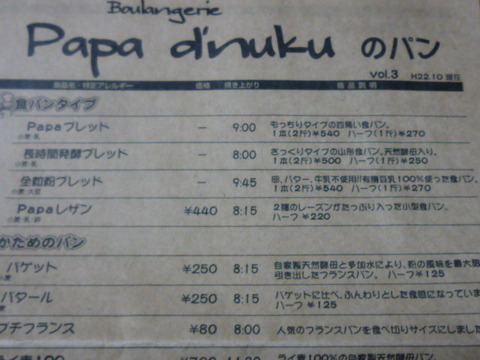 Boulangerie
Papa d'nuku のパン
vol.3 H22.10 現在
商品名・特定アレルギー 価格 焼き上がり 商品説明
食パンタイプ
Papaブレッド — 9:00 もっちりタイプの四角い食パン。
小麦・乳 1本(2斤)¥540 ハーフ(1斤)¥270
長時間発酵ブレッド — 8:00 さっくりタイプの山形食パン。天然酵母入り。
小麦・乳 1本(2斤)¥500 ハーフ(1斤)¥250
全粒粉ブレッド — 9:45 卵、バター、牛乳不使用!!有機豆乳100%使った食パン。
小麦・大豆 1本(2斤)¥540 ハーフ(1斤)¥270
Papaレザン ¥440 8:15 2種のレーズンがたっぷり入った小型食パン。
小麦・乳・卵 ハーフ ¥220
かためのパン
バゲット ¥250 8:15 自家製天然酵母と多加水により、粉の風味を最大限
引き出したフランスパン。 ハーフ ¥125
バタール ¥250 8:15 バゲットに比べ、ふんわりとした食感になっていま
ハーフ ¥125
プチフランス ¥80 8:00 人気のフランスパンを食べ切りサイズにしました
ライ麦100%の自家製天然酵母パン